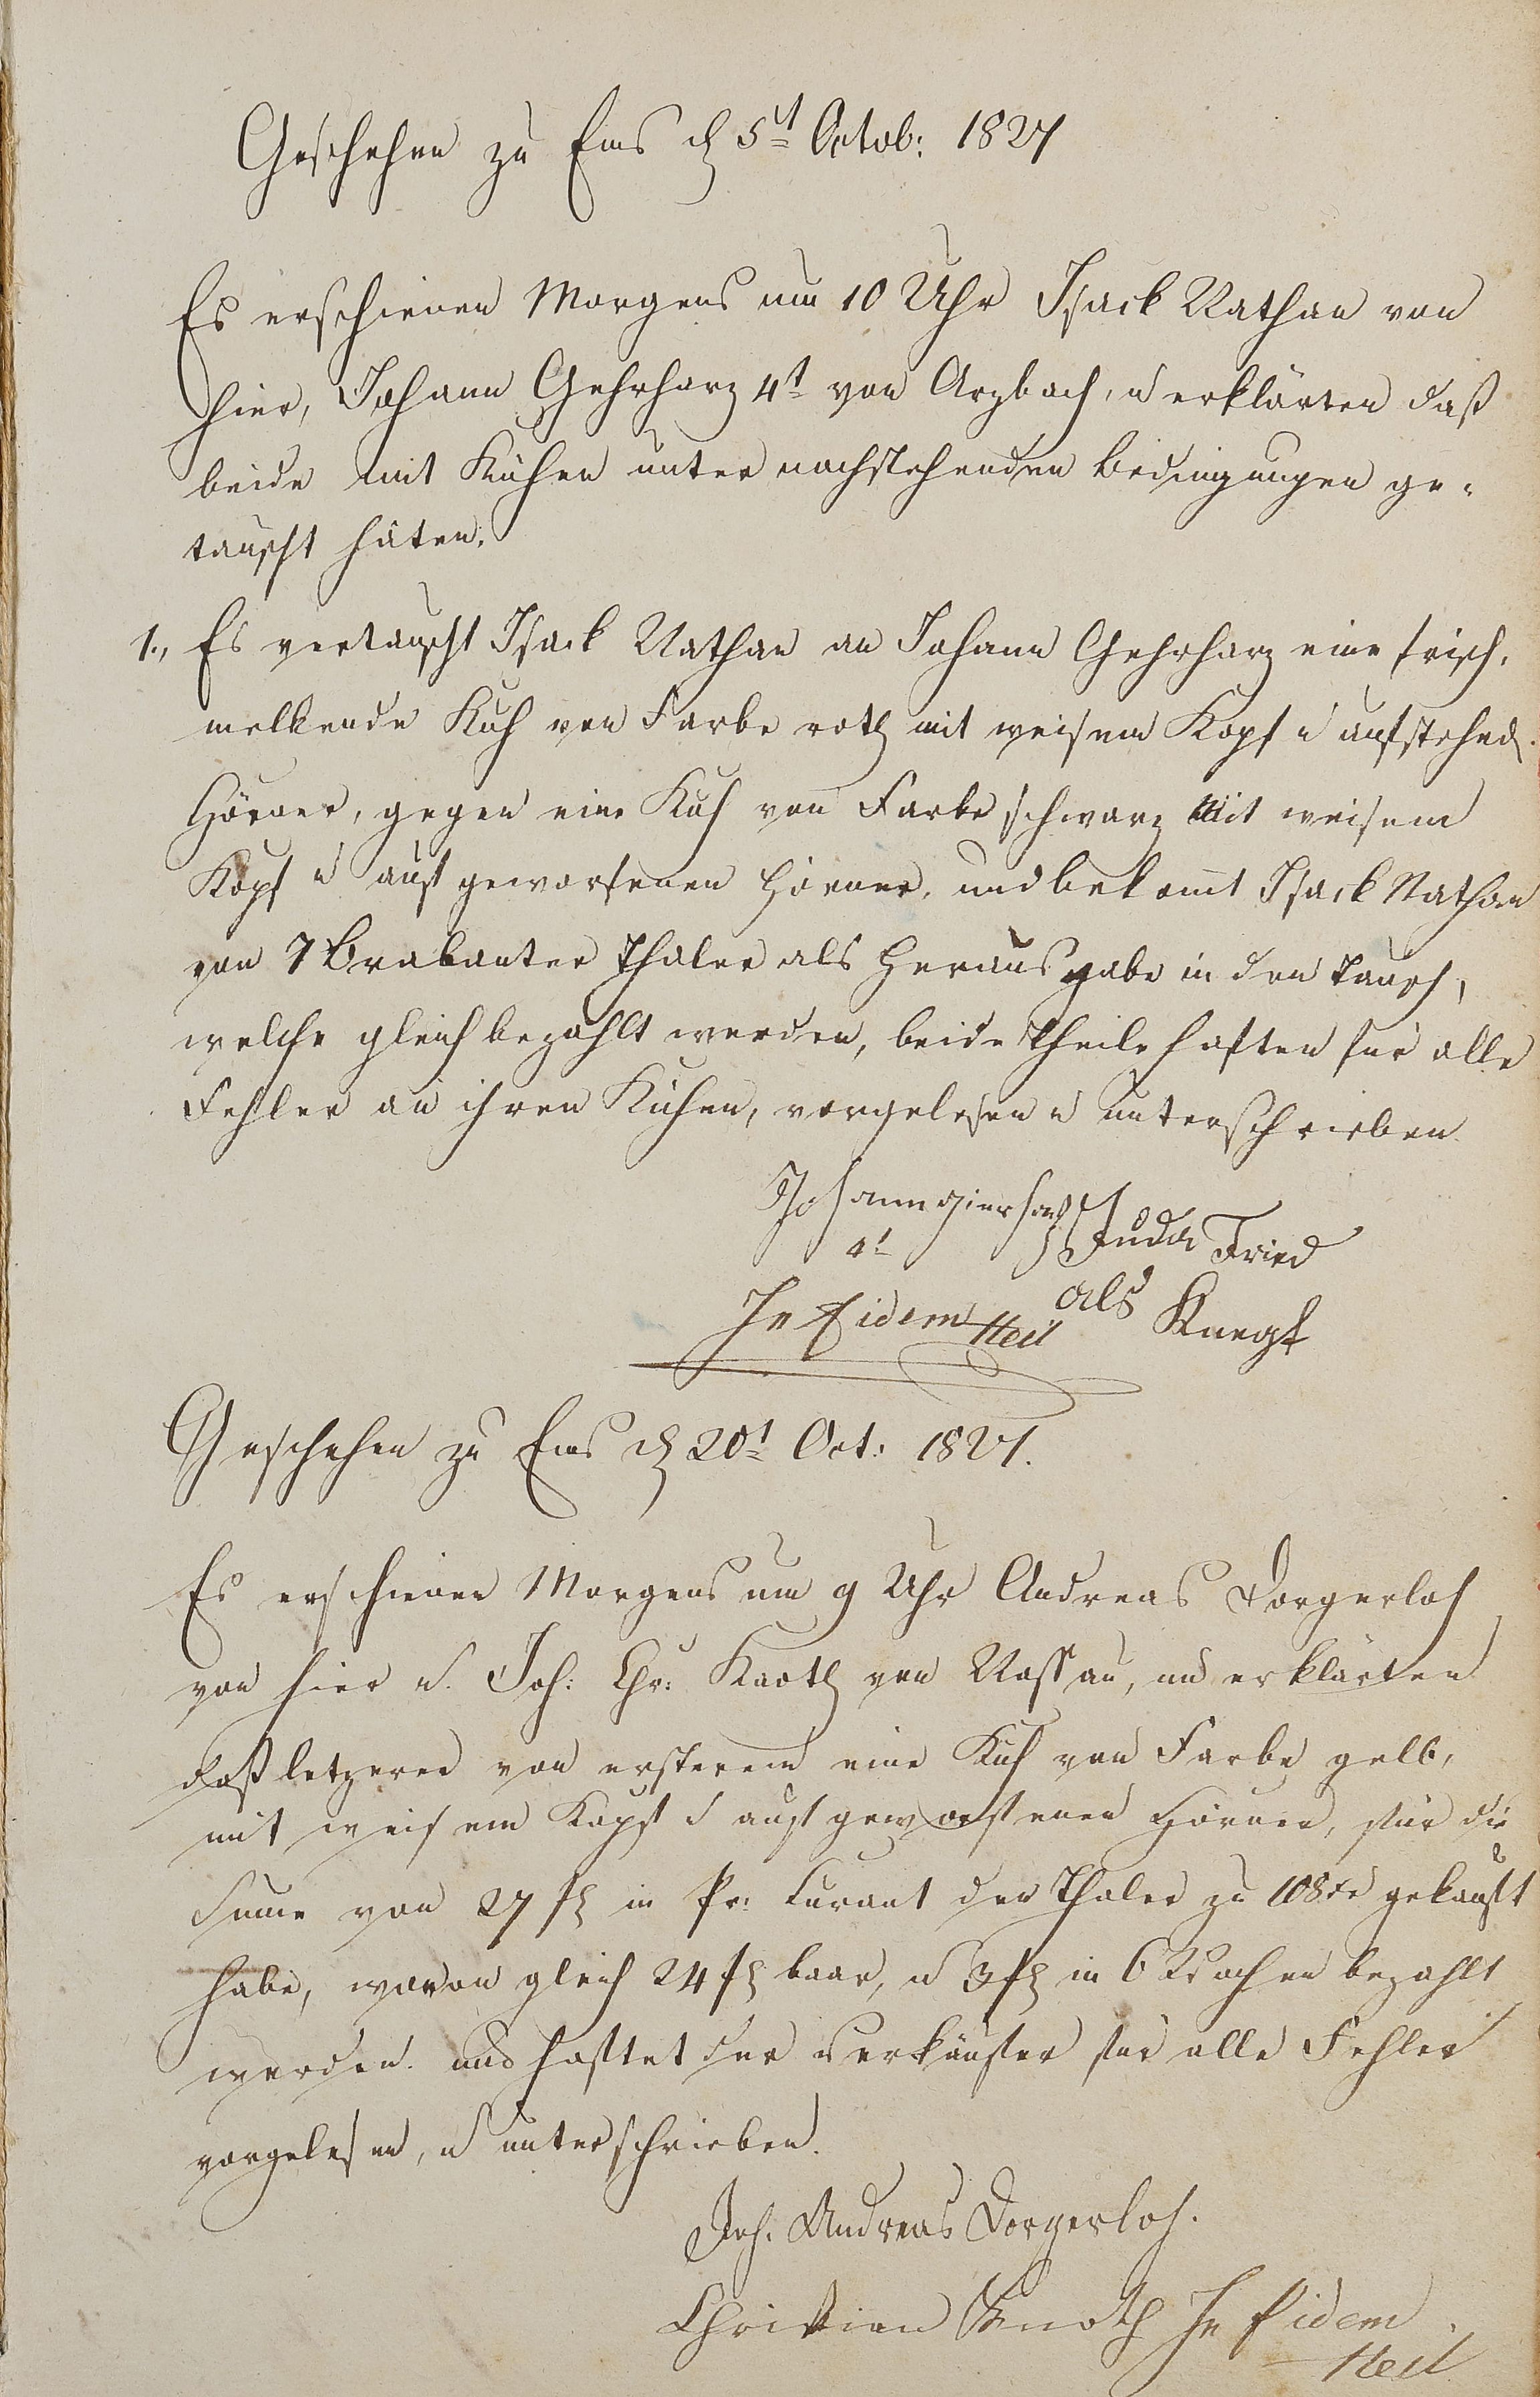 Geschehen zu Ems d 5t Octob: 1827
Es erschienen Morgens um 10 Uhr Isack Nathan von
hier, Johann Gehrharz 4t von Arzbach, u erklärten daß
beide mit Kühen unter nachstehenden Bedingungen ge-
tauscht häten.
1., Es vertauscht Isack Nathan an Johann Gehrharz eine frisch-
melkende Kuh von Farbe roth mit weisem Kopf u aufstehend.
Hörner, gegen eine Kuh von Farbe schwarz mit weisem
Kopf u aufgeworfenen Hörner, und bekomt Isack Nathan
von 7 Brabanter Thaler als Herausgabe in den Tausch,
welche gleich bezahlt werden, beide Theile haften für alle
Fehler an ihren Kühen, vorgelesen u unterschrieben
Johann Gierharz Juda Fried
4t
als Knegt
In fidem Heil
Geschehen zu Ems d 20t Oct: 1827.
Es erschienen Morgens um 9 Uhr Andreas Dorgerloh
von hier u. Joh: Chr: Knoth von Nassau, und erklärten
daß letzerer von ersterem eine Kuh von Farbe gelb,
mit weisem Kopf u aufgeworfenen Hörner, für die
Sume von 27 fl in Pr: Curant den Thaler zu 108xr gekauft
habe, wovon gleich 24 fl baar, u 3 fl in 6 Wochen bezahlt
werden. und haftet der Verkäufer für alle Fehler
vorgelesen, u unterschrieben.
Joh. Andreas Dorgerloh.
Christian Knoth In fidem
Heil